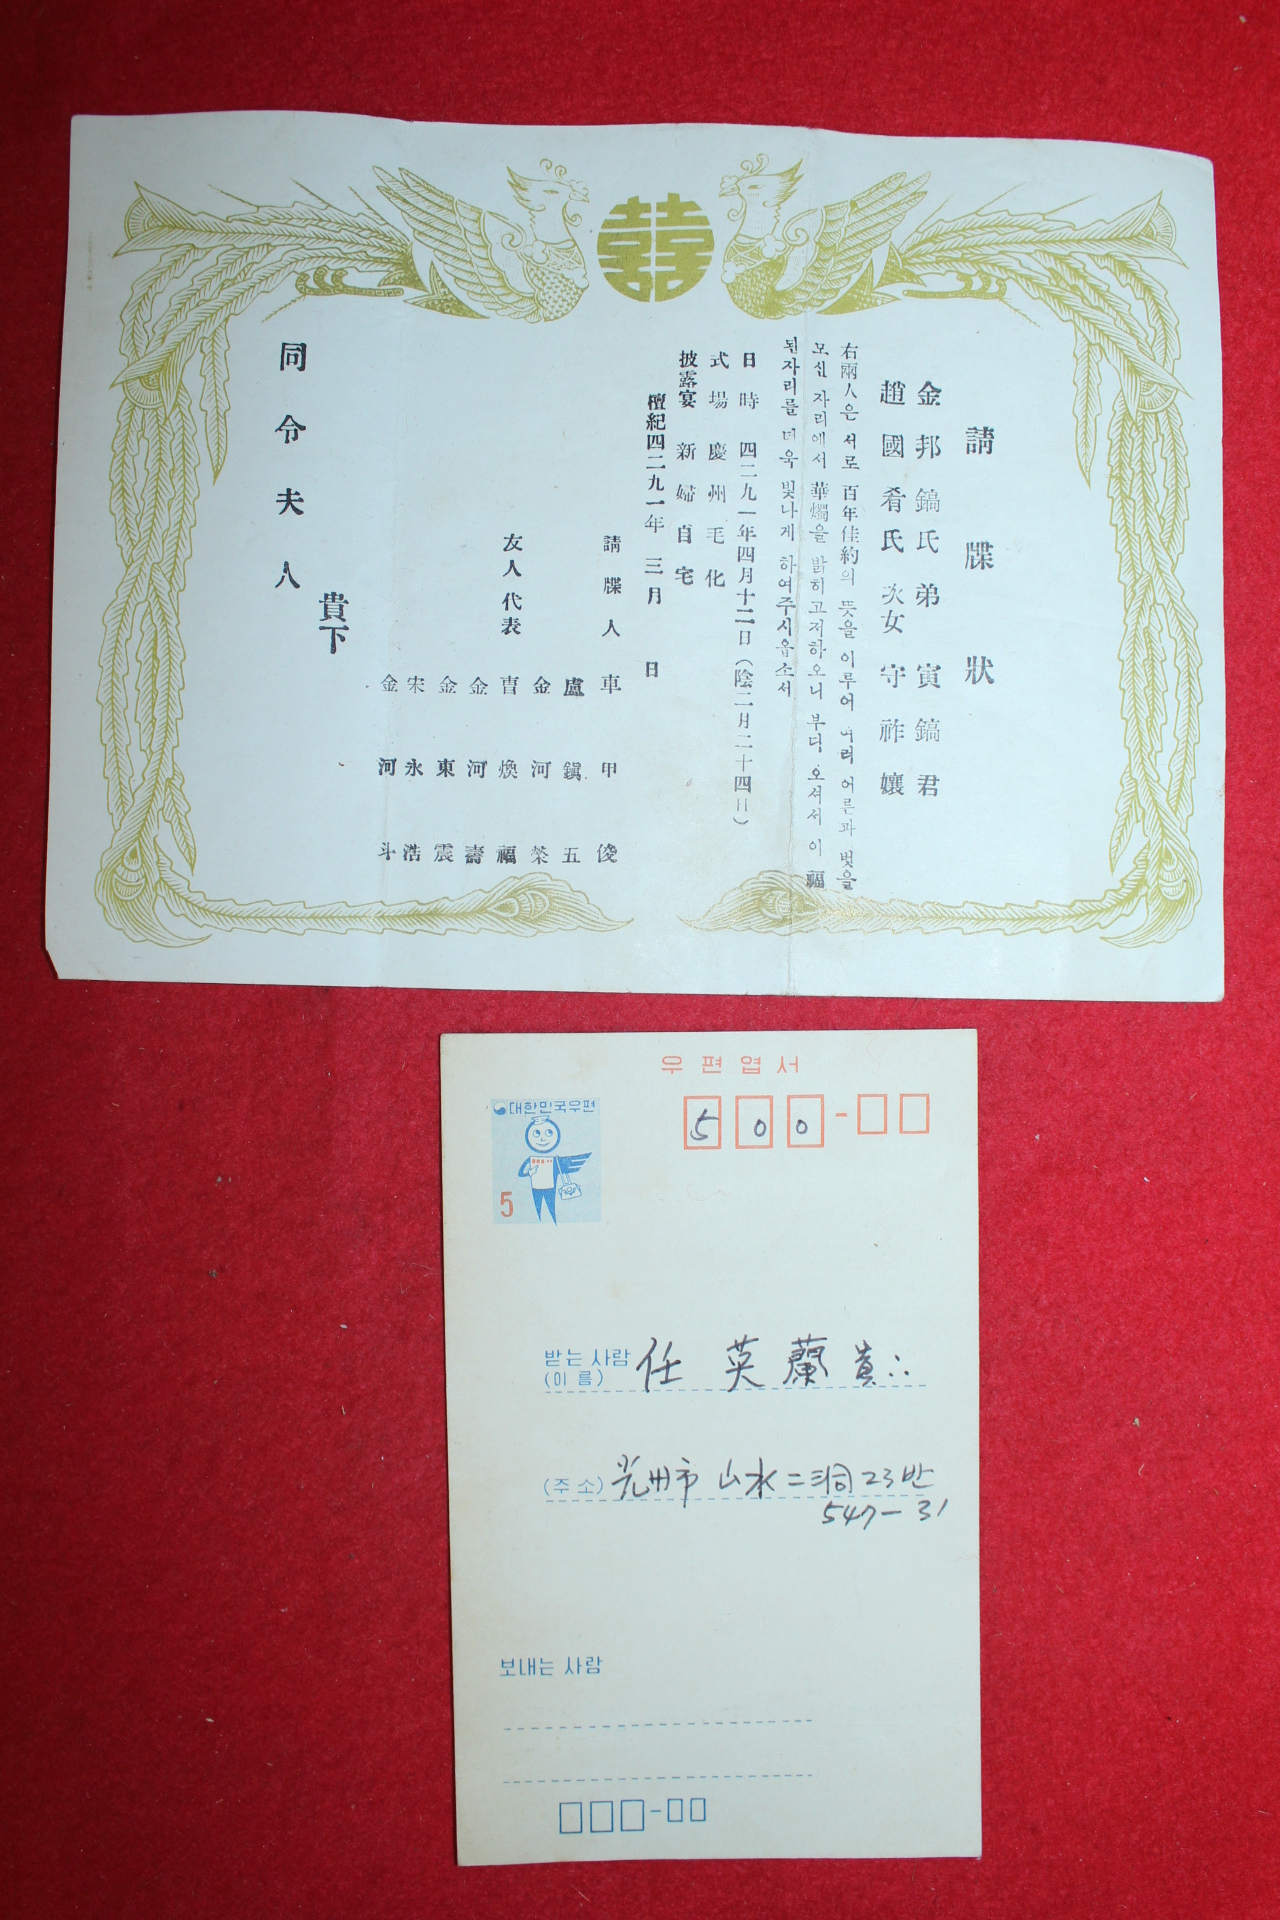 囍
請牒狀
金邦鎬氏弟寅鎬君
趙國肴氏次女守祚孃
右兩人은 서로 百年佳約의 뜻을 이루어 여러 어른과 벗을
모신 자리에서 華燭을 밝히고저하오니 부디 오셔서 이 福
된자리를 더욱 빛나게 하여주시옵소서
日時 四二九一年四月十二日(陰二月二十四日)
式場 慶州毛化
披露宴 新婦自宅
檀紀四二九一年 三月 日
請牒人 車甲俊
盧鎭五
金河榮
友人代表 曺煥福
金河壽
金東震
宋永浩
金河斗
貴下
同令夫人
우편엽서
대한민국우편
5
500-
받는 사람
(이 름)
任英蘭 貴下
(주 소) 光州市 山水二洞 23반
547-31
보내는 사람